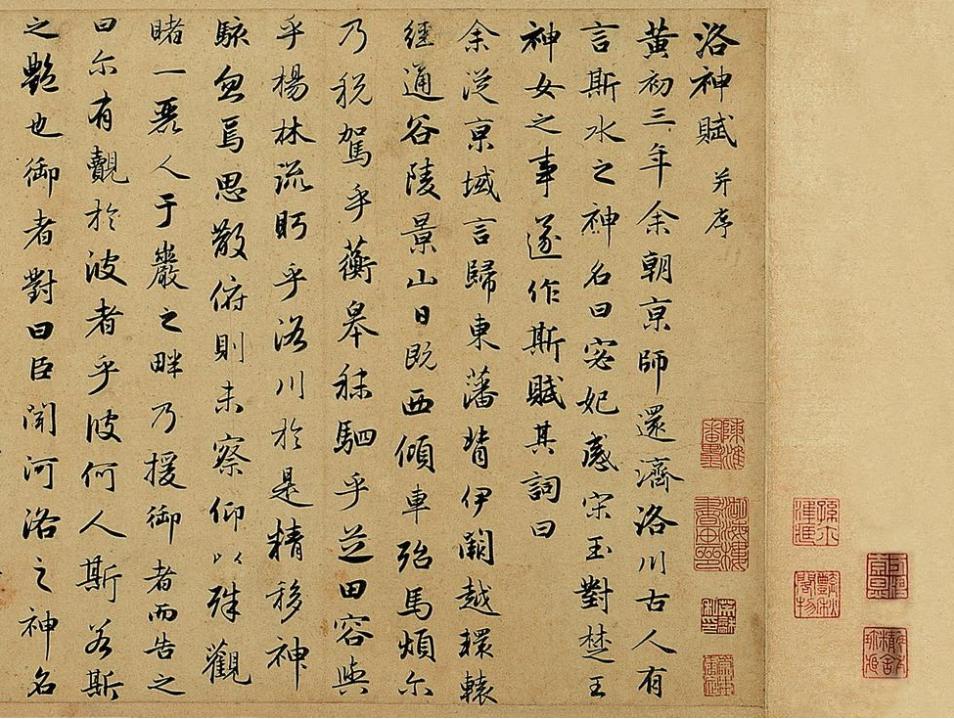 洛神賦 并序
黄初三年余朝京師還濟洛川古人有
言斯水之神名曰宓妃感宋玉對楚王
神女之事遂作斯賦其詞曰
余從京域言歸東藩背伊闕越轘轅
經通谷陵景山日既西傾車殆馬煩尓
乃税駕乎蘅皋秣駟乎芝田容與
乎楊林流眄乎洛川於是精移神
駭忽焉思散俯則未察仰以殊觀
睹一麗人于巖之畔乃援御者而告之
曰尓有覿於彼者乎彼何人斯若斯
之豔也御者對曰臣聞河洛之神名